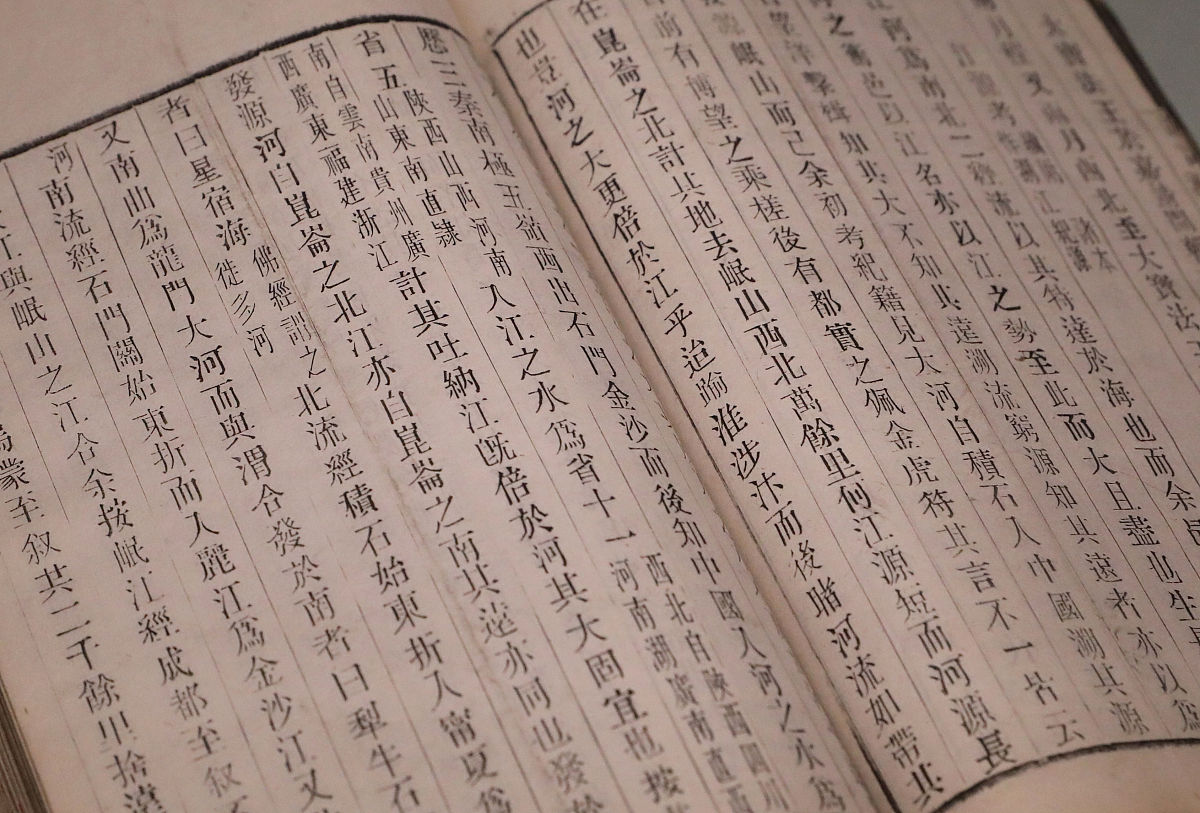 河為南北二經流以其特達於海也而余邑
邑以江名亦以江之勢至此而大且盡也生
擊楫知其大不知其遠溯流窮源知其遠者亦以為
岷山而已余初考紀籍見大河自積石入中國溯其源
前有博望之乘槎後有都實之佩金虎符其言不一皆云
在崑崙之北計其地去岷山西北萬餘里何江源短而河源長
也豈河之大更倍於江乎迨踰淮涉汴而後睹河流如帶其
歷三秦南極五嶺西出石門金沙而後知中國入河之水為
省五陝西山西河南山東南直隸入江之水為省十一西北自陝西四川河南湖廣南直西
南自雲南貴州廣西廣東福建浙江計其吐納江既倍於河其大固宜也按
發源河自崑崙之北江亦自崑崙之南其遠亦同也發於
者曰星宿海佛經謂之徙多河北流經積石始東折入甯夏為
又南曲為龍門大河而與渭合發於南者曰犁牛石
河南流經石門關始東折而入麗江為金沙江又
江與岷山之江合余按岷江經成都至叙
蒙至叙共二千餘里捨遠